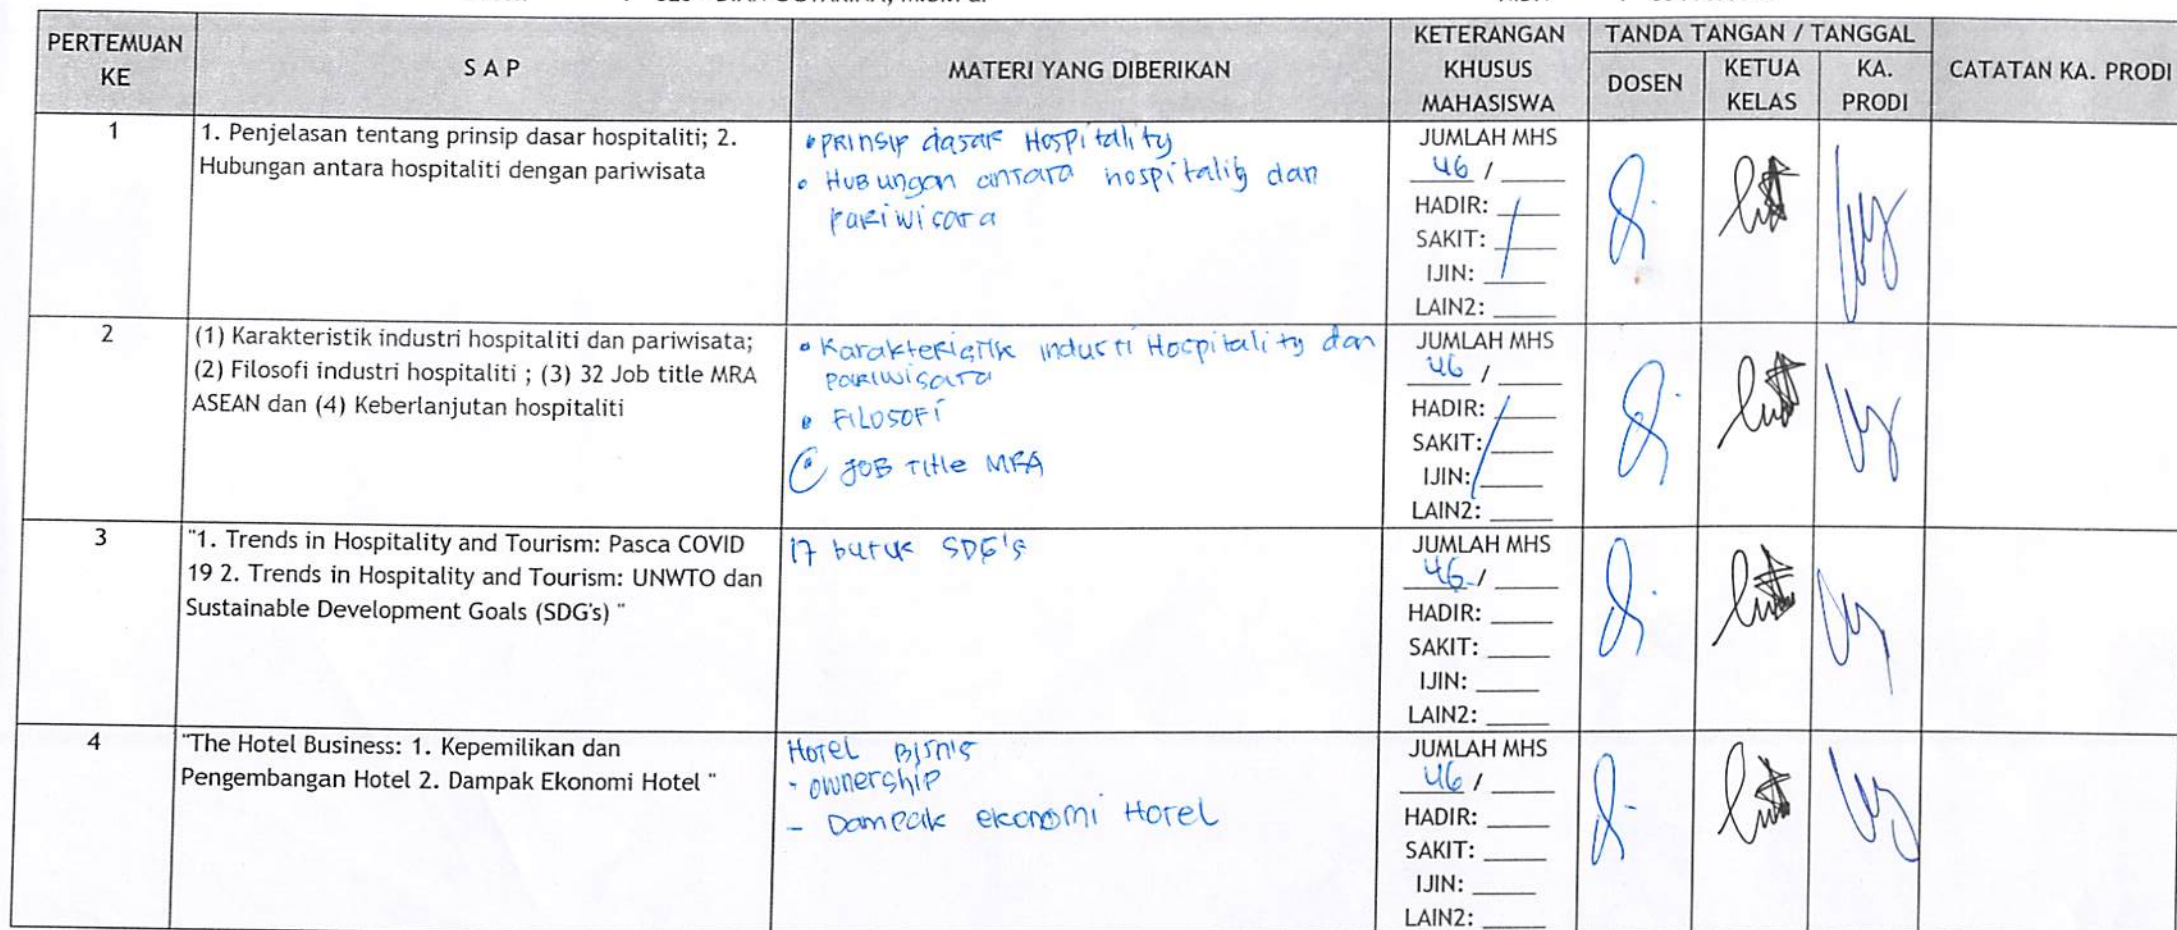 PERTEMUAN KE
S A P
MATERI YANG DIBERIKAN
KETERANGAN KHUSUS MAHASISWA
TANDA TANGAN / TANGGAL
DOSEN
KETUA KELAS
KA. PRODI
CATATAN KA. PRODI
1
1. Penjelasan tentang prinsip dasar hospitaliti; 2.
Hubungan antara hospitaliti dengan pariwisata
• PRINSIP dasar Hospitality
• Hubungan antara hospitality dan
pariwisata
JUMLAH MHS
46 /
HADIR:
SAKIT:
IJIN:
LAIN2:
2
(1) Karakteristik industri hospitaliti dan pariwisata;
(2) Filosofi industri hospitaliti ; (3) 32 Job title MRA
ASEAN dan (4) Keberlanjutan hospitaliti
• Karakteristik industi Hospitality dan
pariwisata
• FILOSOFI
• JOB Title MRA
JUMLAH MHS
46 /
HADIR:
SAKIT:
IJIN:
LAIN2:
3
"1. Trends in Hospitality and Tourism: Pasca COVID
19 2. Trends in Hospitality and Tourism: UNWTO dan
Sustainable Development Goals (SDG's) "
17 SDG's
JUMLAH MHS
46 /
HADIR:
SAKIT:
IJIN:
LAIN2:
4
"The Hotel Business: 1. Kepemilikan dan
Pengembangan Hotel 2. Dampak Ekonomi Hotel "
Hotel Bisnis
- ownership
- Dampak ekonomi Hotel
JUMLAH MHS
46 /
HADIR:
SAKIT:
IJIN:
LAIN2: